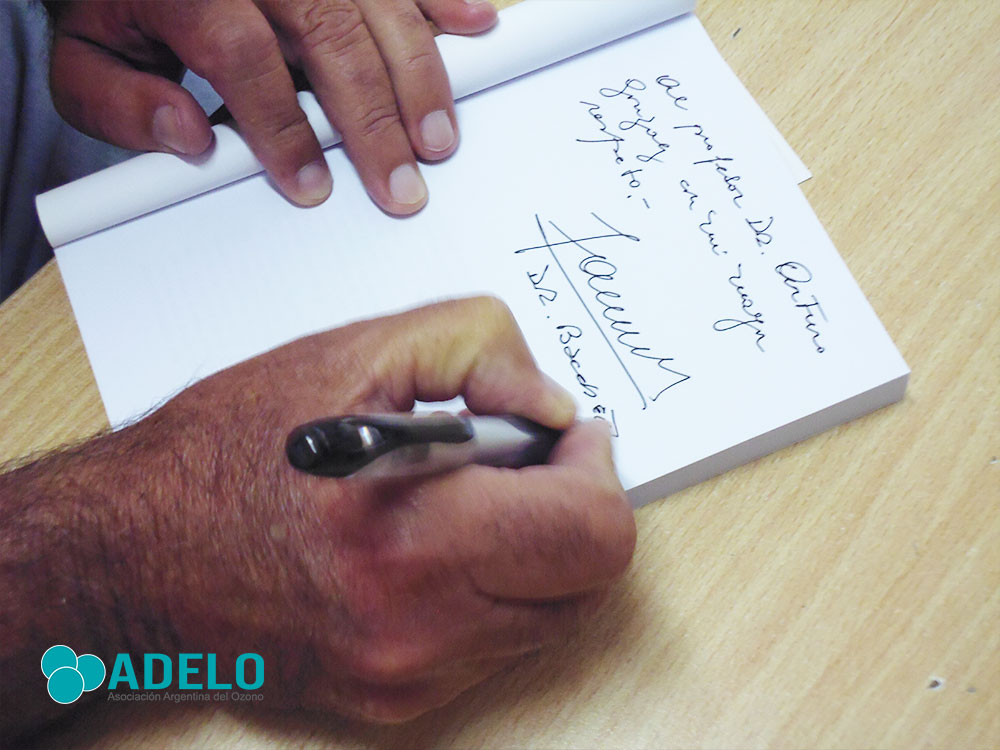 al profesor DR. Arturo
con mi mayor
respeto.-
DR.
ADELO
Asociación Argentina del Ozono